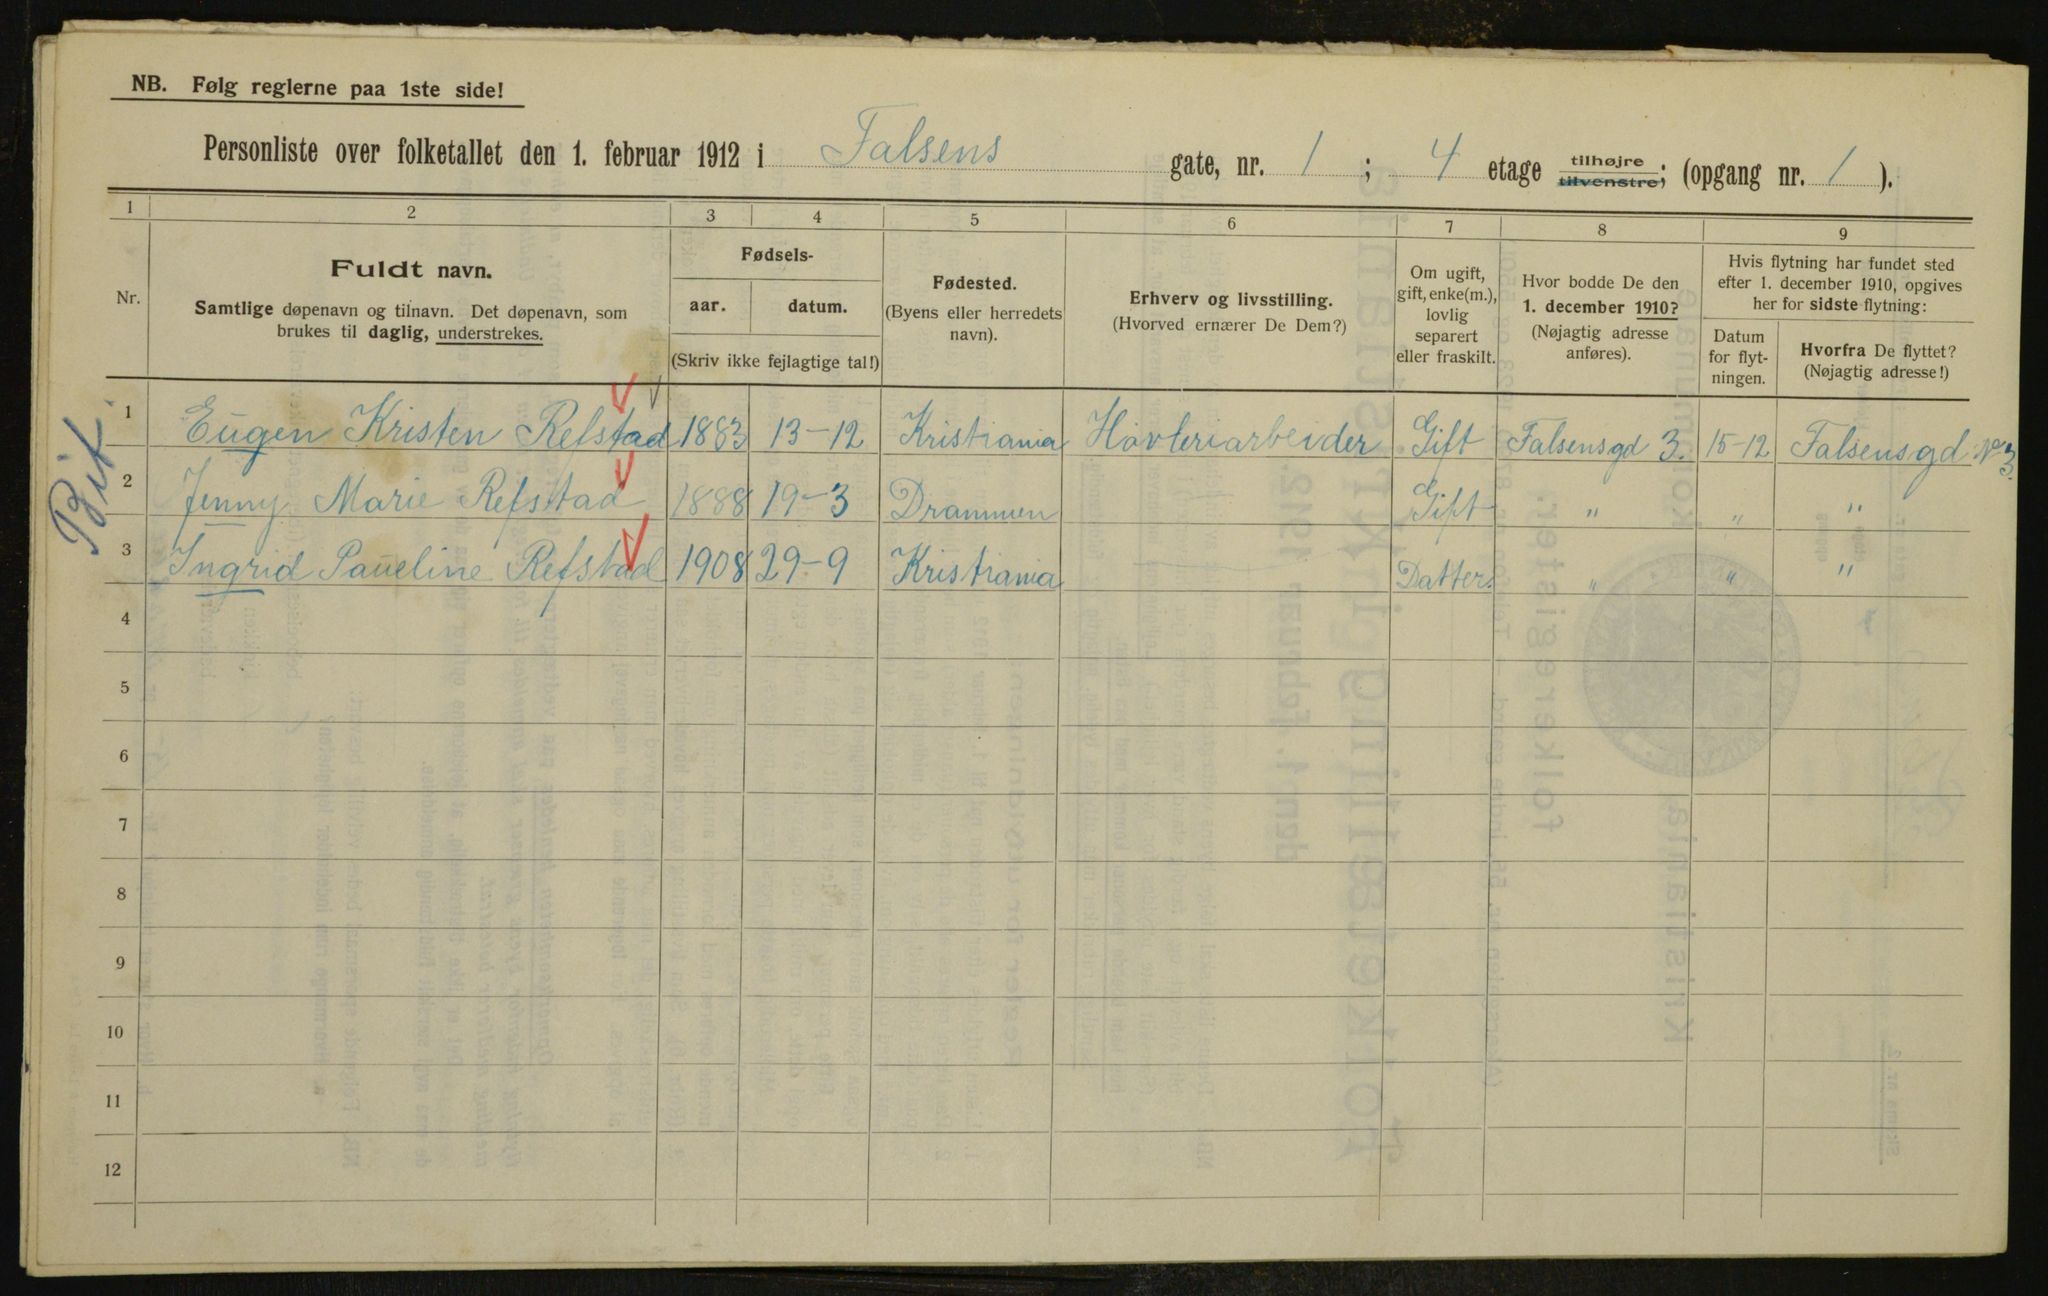 NB. Følg reglerne paa 1ste side!
Personliste over folketallet den 1. februar 1912 i Falsens gate, nr. 1 ; 4 etage tilhøjre tilvenstre; (opgang nr. 1 ).
1 2 3 4 5 6 7 8 9
Nr.
Fuldt navn.
Samtlige døpenavn og tilnavn. Det døpenavn, som
brukes til daglig, understrekes.
Fødsels-
aar. datum.
(Skriv ikke fejlagtige tal!)
Fødested.
(Byens eller herredets
navn).
Erhverv og livsstilling.
(Hvorved ernærer De Dem?)
Om ugift,
gift, enke(m.),
lovlig
separert
eller fraskilt.
Hvor bodde De den
1. december 1910?
(Nøjagtig adresse
anføres).
Hvis flytning har fundet sted
efter 1. december 1910, opgives
her for sidste flytning:
Datum
for flyt-
ningen.
Hvorfra De flyttet?
(Nøjagtig adresse!)
1 Eugen Kristen Refstad 1883 13-12 Kristiania Høvleriarbeider Gift Falsensgd 3. 15-12 Falsensgd No 3.
2 Jenny Marie Refstad 1888 19-3 Drammen Gift " " "
3 Ingrid Paueline Refstad 1908 29-9 Kristiania Datter. " " "
4
5
6
7
8
9
10
11
12